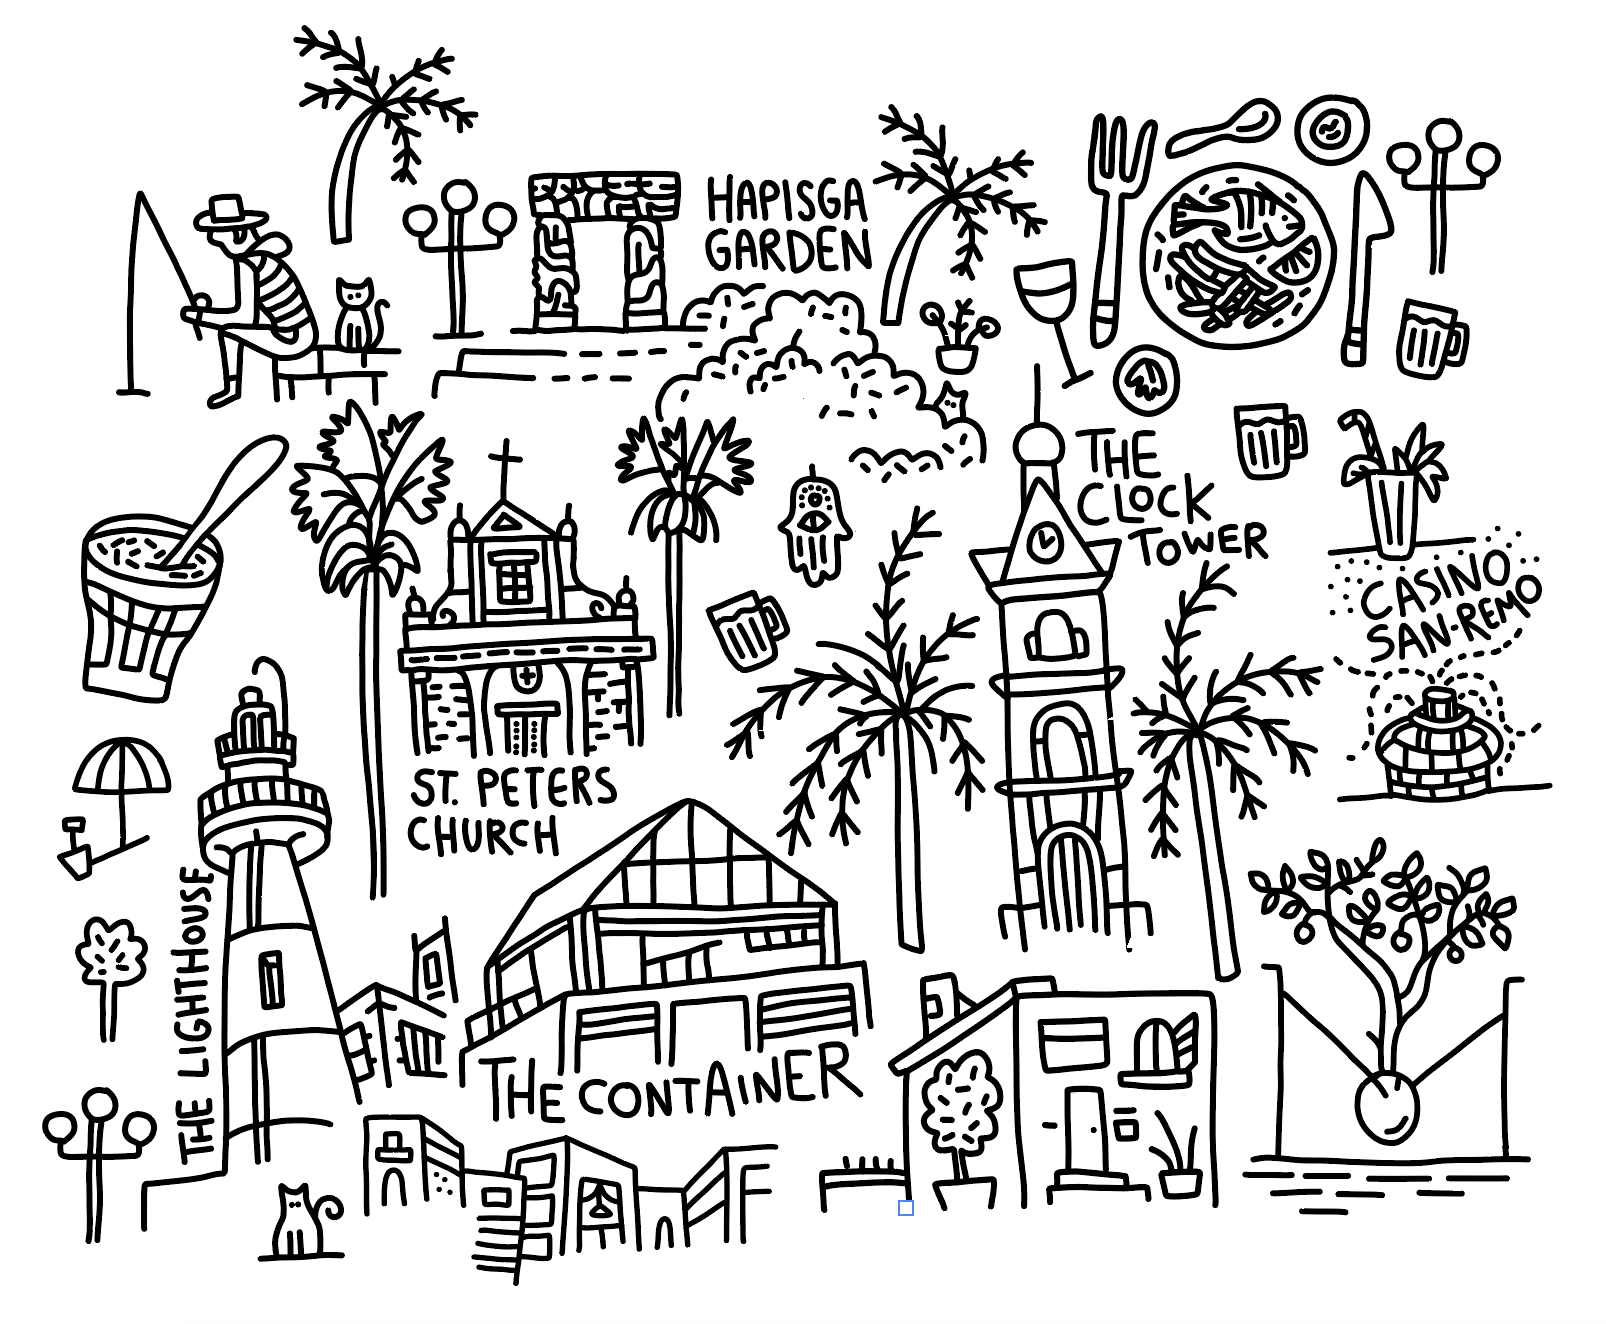 HAPISGA
GARDEN
THE
CLOCK
TOWER
CASINO
SAN-REMO
ST. PETERS
CHURCH
THE LIGHTHOUSE
THE CONTAINER